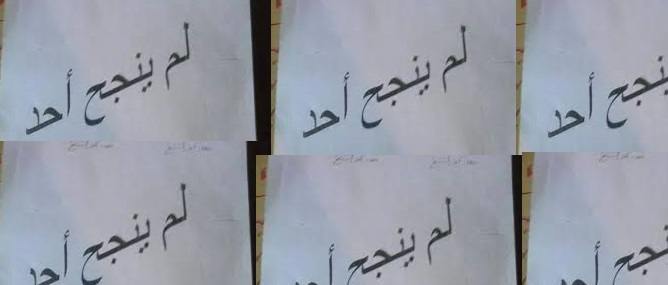 لم ينجح أحد
لم ينجح أحد
ينجح أحد
لم ينجح أحد
لم ينجح أحد
أحد